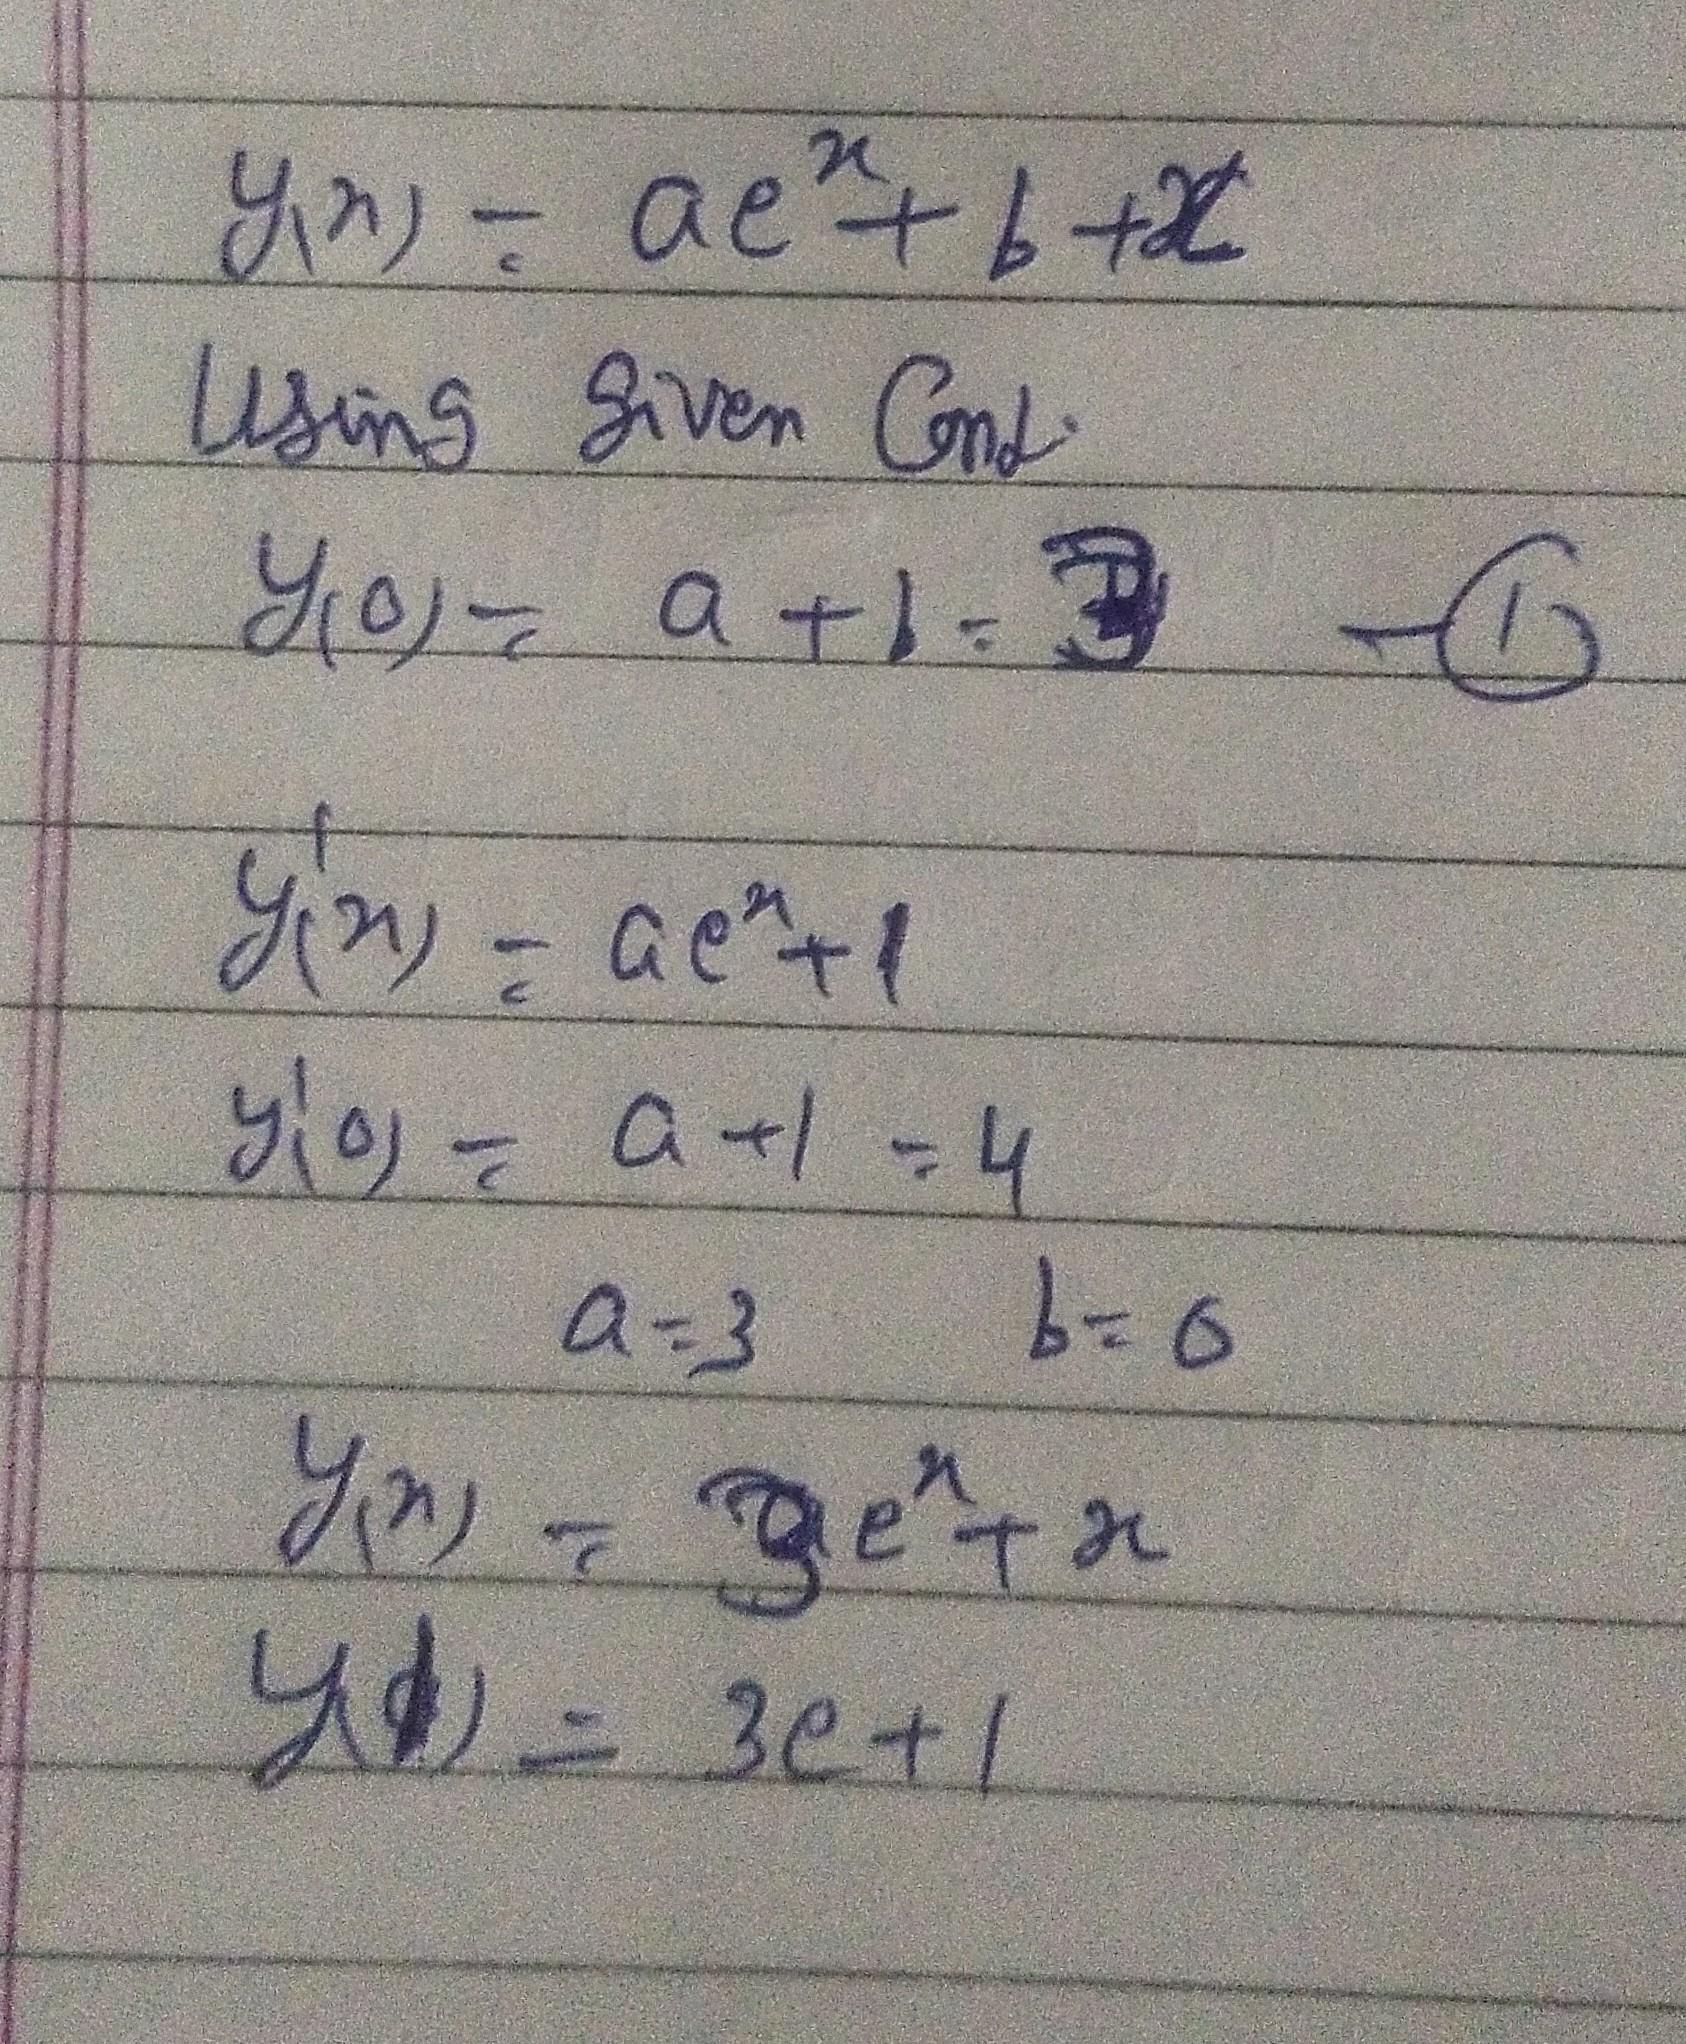 y(x) = ae^x + b + x
Using given Cond.
y(0) = a + b = 3 —①
y'(x) = ae^x + 1
y'(0) = a + 1 = 4
a = 3 b = 0
y(x) = 3e^x + x
y(1) = 3e + 1